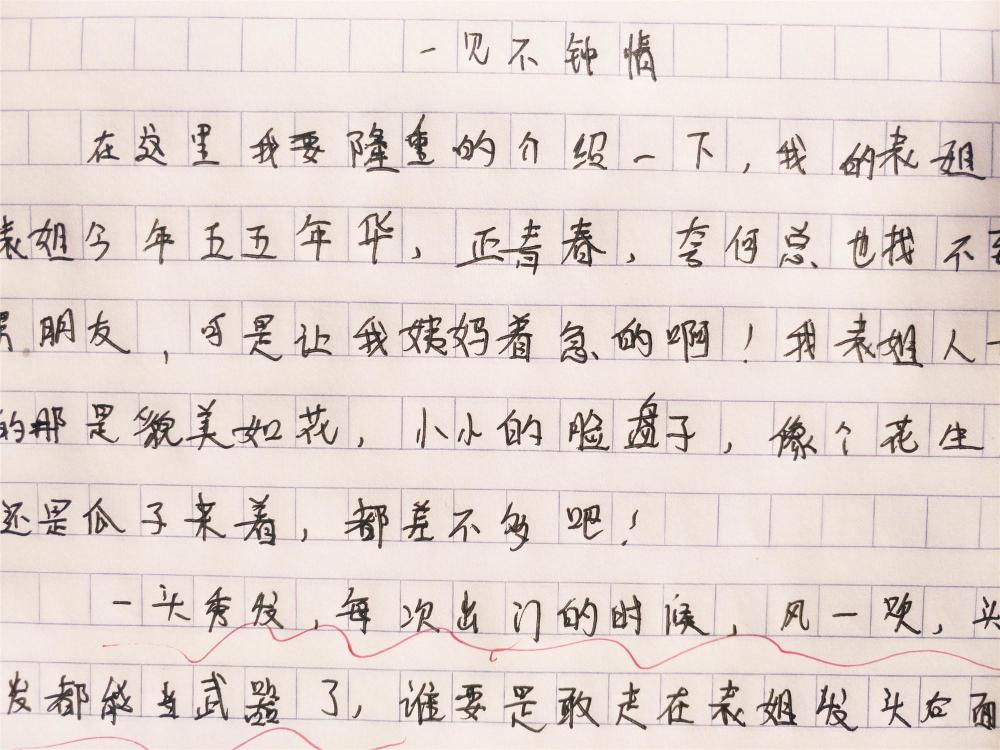 一见不钟情
在这里我要隆重的介绍一下，我的表姐
表姐今年五五年华，正青春，奈何总也找不到
男朋友，可是让我姨妈着急的啊！我表姐人
的那是貌美如花，小小的脸盘子，像个花生
还是瓜子来着，都差不多吧！
一头秀发，每次出门的时候，风一吹，头
发都能当武器了，谁要是敢走在表姐发头右面